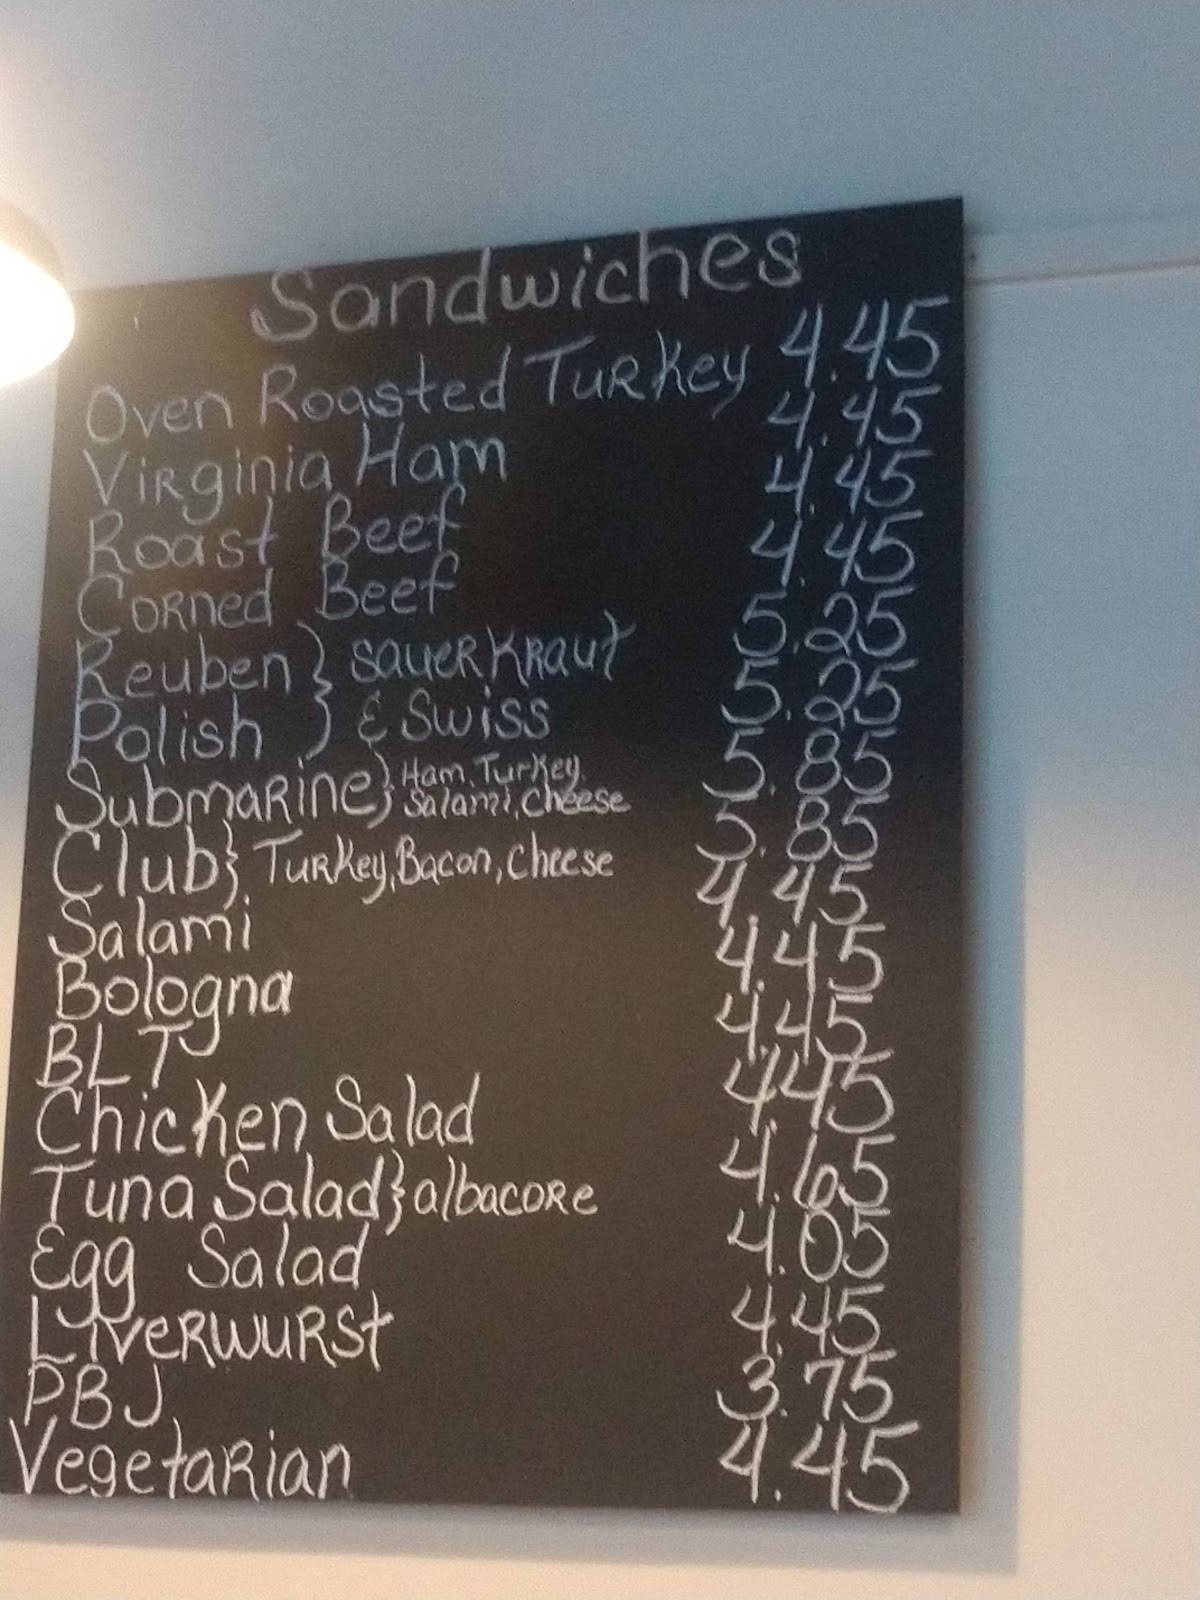 Sandwiches
Oven Roasted Turkey 4.45
Virginia Ham 4.45
Roast Beef 4.45
Corned Beef 4.45
Reuben } Sauerkraut 5.25
Polish } & Swiss 5.25
Submarine } Ham, Turkey, Salami, Cheese 5.85
Club } Turkey, Bacon, Cheese 5.85
Salami 4.45
Bologna 4.45
BLT 4.45
Chicken Salad 4.45
Tuna Salad } albacore 4.65
Egg Salad 4.05
Liverwurst 4.45
PBJ 3.75
Vegetarian 4.45